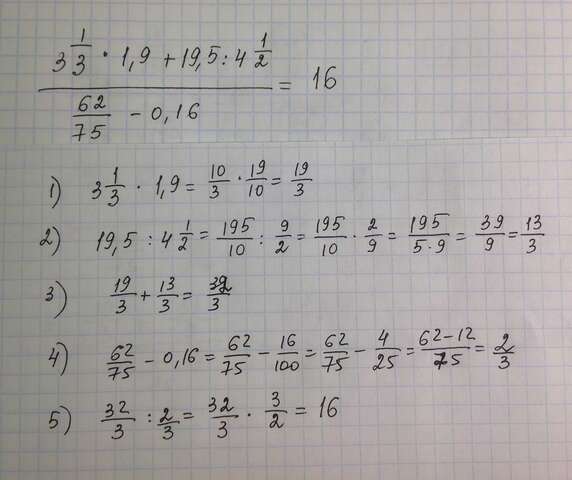 (3 1/3 · 1,9 + 19,5 : 4 1/2) / (62/75 - 0,16) = 16
1) 3 1/3 · 1,9 = 10/3 · 19/10 = 19/3
2) 19,5 : 4 1/2 = 195/10 : 9/2 = 195/10 · 2/9 = 195/(5·9) = 39/9 = 13/3
3) 19/3 + 13/3 = 32/3
4) 62/75 - 0,16 = 62/75 - 16/100 = 62/75 - 4/25 = (62-12)/75 = 2/3
5) 32/3 : 2/3 = 32/3 · 3/2 = 16